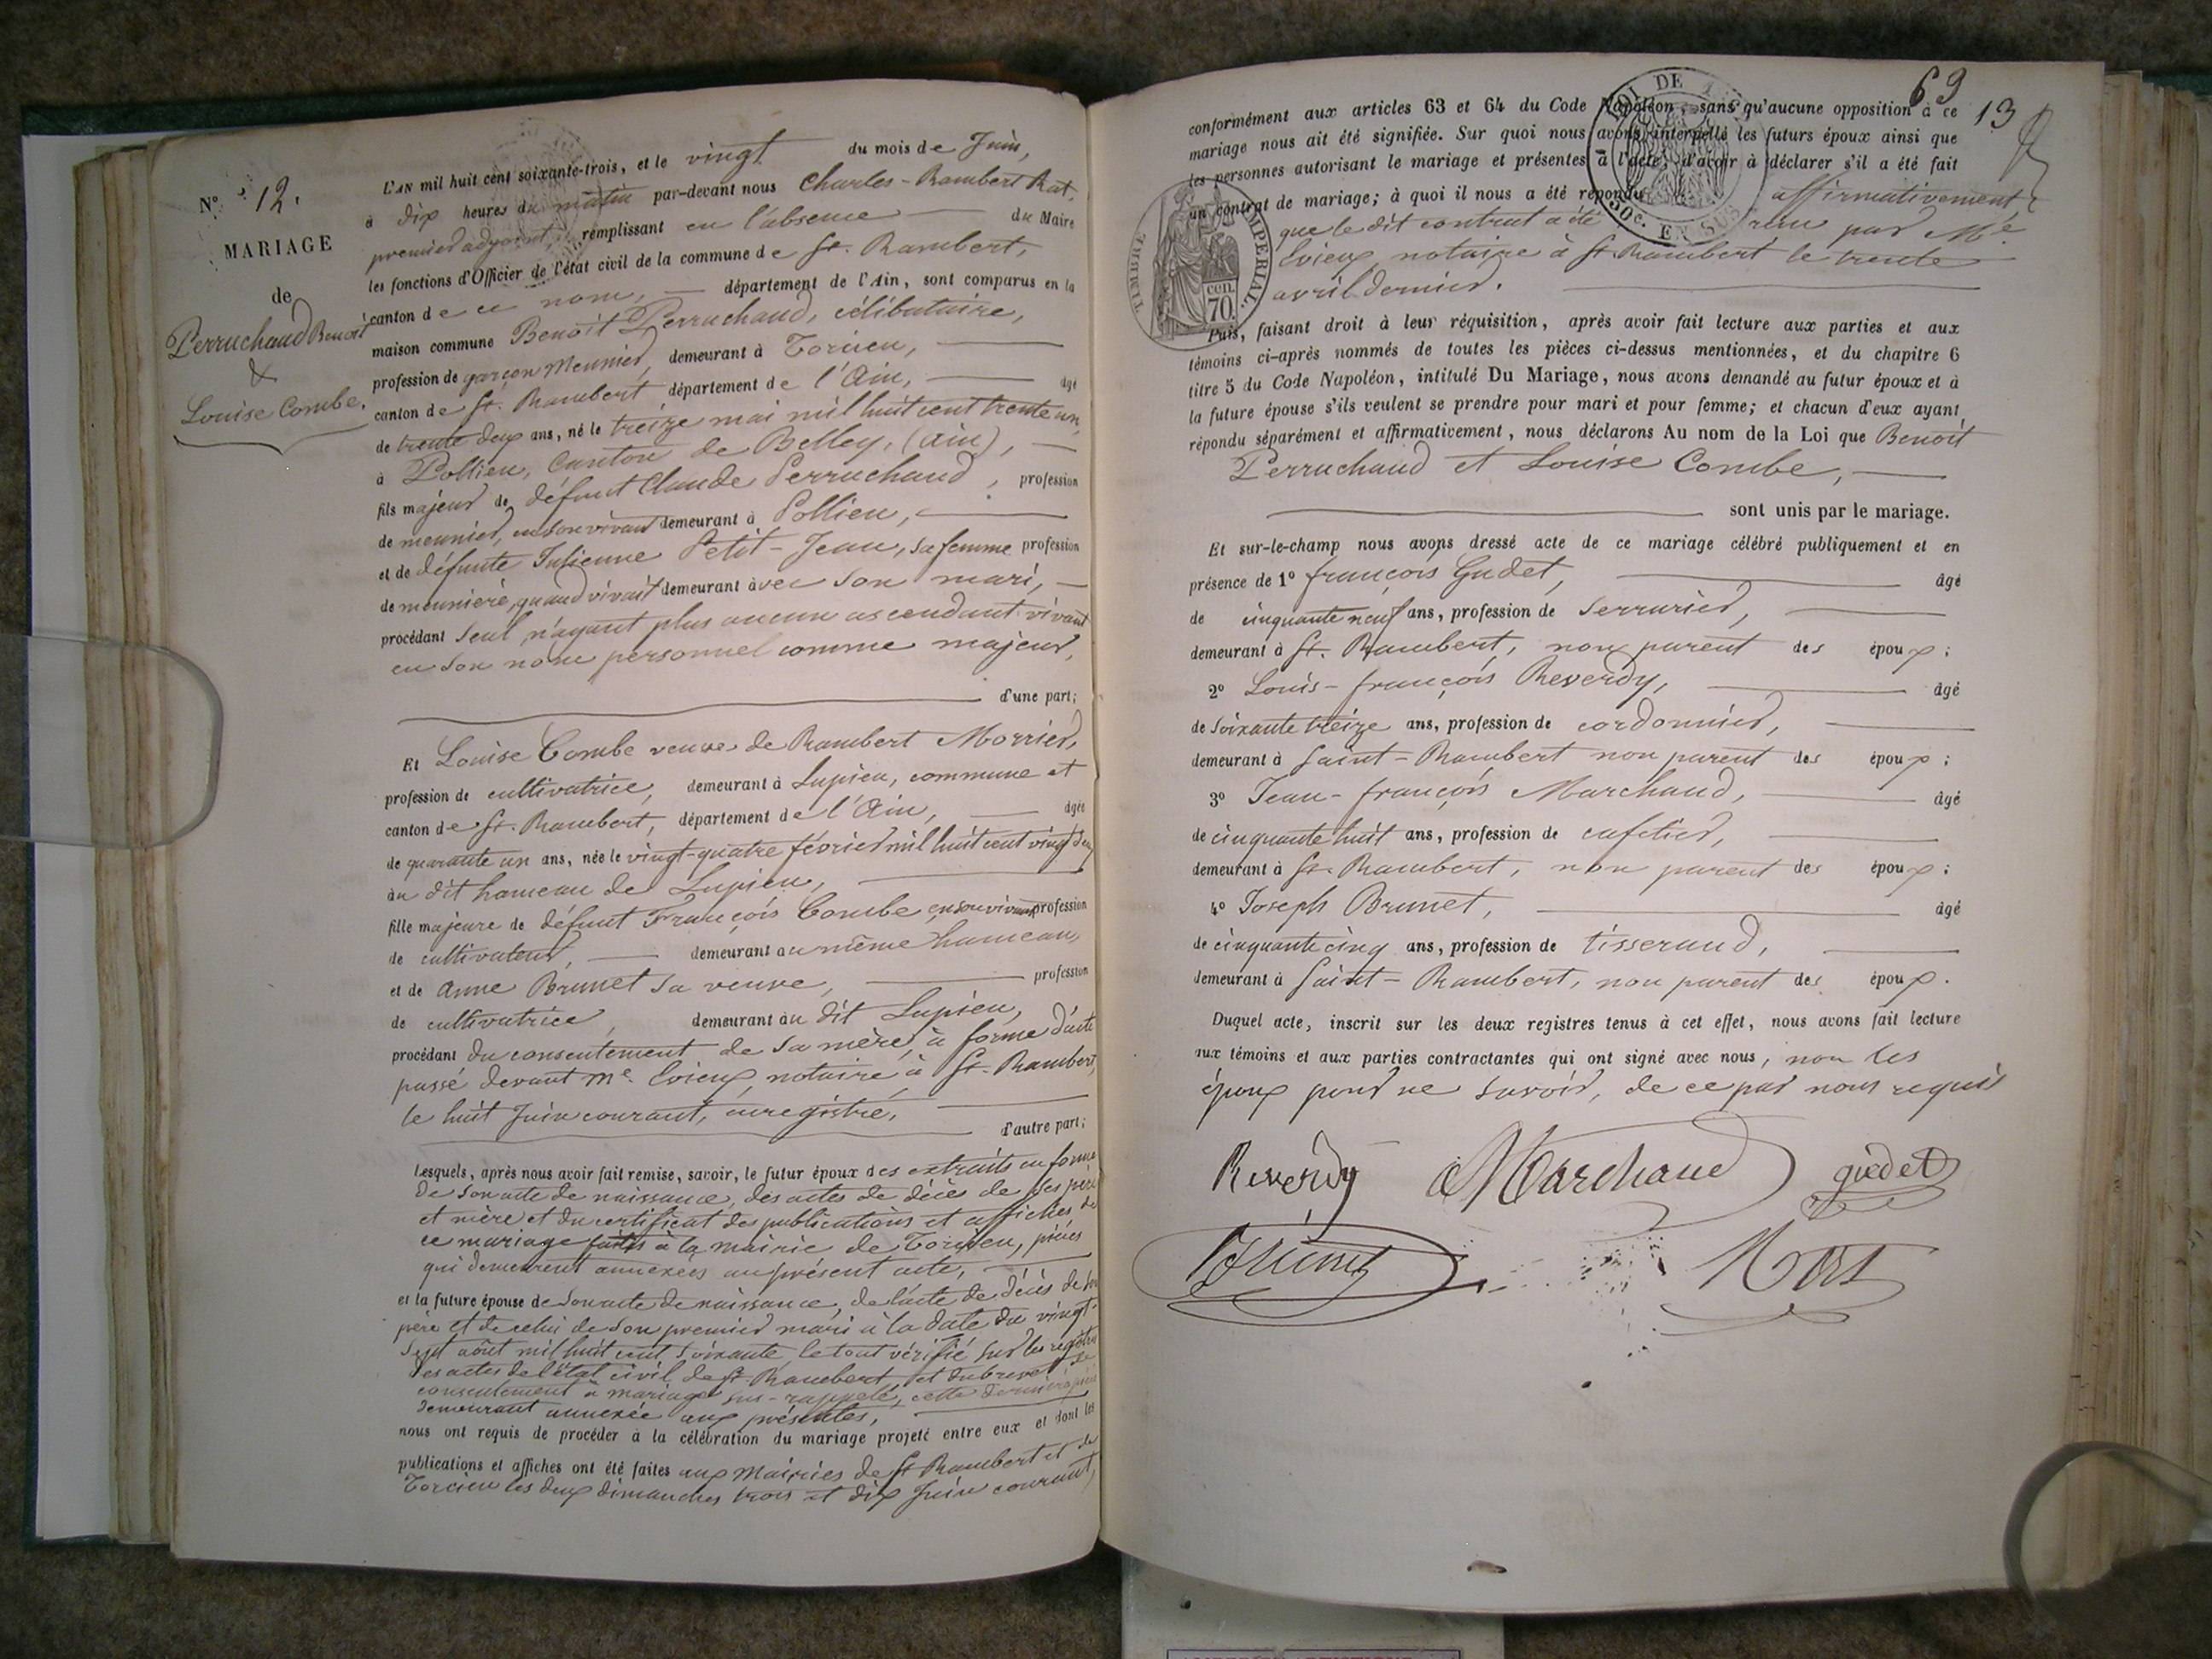 N° 12.
MARIAGE
de
Perruchaud Benoit
&
Louise Combe.
L'AN mil huit cent soixante-trois, et le vingt du mois de Juin,
à dix heures du matin par-devant nous Charles-Rambert Rat,
premier adjoint, remplissant en l'absence du Maire
les fonctions d'Officier de l'état civil de la commune de St. Rambert,
canton de ce nom, département de l'Ain, sont comparus en la
maison commune Benoit Perruchaud, célibataire,
profession de garçon Meunier, demeurant à Torcieu,
canton de St. Rambert département de l'Ain, âgé
de trente deux ans, né le treize mai mil huit cent trente un,
à Pollieu, Canton de Belley, (Ain),
fils majeur de défunt Claude Perruchaud, profession
de meunier, en son vivant demeurant à Pollieu,
et de défunte Julienne Petit-Jean, sa femme profession
de meunière, quand vivait demeurant avec son mari,
procédant seul n'ayant plus aucun ascendant vivant
en son nom personnel comme majeur,
d'une part;
Et Louise Combe veuve de Rambert Morrier,
profession de cultivatrice, demeurant à Lupieu, commune et
canton de St. Rambert, département de l'Ain, âgée
de quarante un ans, née le vingt-quatre février mil huit cent vingt deux
au dit hameau de Lupieu,
fille majeure de défunt François Combe en son vivant profession
de cultivateur, demeurant au même hameau,
et de Anne Brunet sa veuve, profession
de cultivatrice, demeurant au dit Lupieu,
procédant du consentement de sa mère, à forme d'acte
passé devant Me. notaire à St. Rambert,
le huit Juin courant, enregistré,
d'autre part;
Lesquels, après nous avoir fait remise, savoir, le futur époux des extraits en forme
de son acte de naissance, des actes de décès de ses père
et mère et du certificat des publications et affiches de
ce mariage faites à la mairie de Torcieu, pièces
qui demeurent annexées au présent acte,
et la future épouse de son acte de naissance, de l'acte de décès de son
père et de celui de son premier mari à la date du vingt-
sept août mil huit cent soixante, le tout vérifié sur les registres
des actes de l'état civil de St Rambert et du brevet de
consentement à mariage sus-rappelé, cette dernière pièce
demeurant annexée aux présentes,
nous ont requis de procéder à la célébration du mariage projeté entre eux et dont les
publications et affiches ont été faites aux Mairies de St Rambert et de
Torcieu les deux dimanches trois et dix Juin courant,
63
13
conformément aux articles 63 et 64 du Code Napoléon, sans qu'aucune opposition à ce
mariage nous ait été signifiée. Sur quoi nous avons interpellé les futurs époux ainsi que
les personnes autorisant le mariage et présentes à l'acte, d'avoir à déclarer s'il a été fait
un contrat de mariage; à quoi il nous a été répondu affirmativement,
que le dit contrat a été reçu par Me
notaire à St. Rambert le trente
avril dernier.
TIMBRE IMPERIAL
cen.
70.
50c. EN SUS
Puis, faisant droit à leur réquisition, après avoir fait lecture aux parties et aux
témoins ci-après nommés de toutes les pièces ci-dessus mentionnées, et du chapitre 6
titre 5 du Code Napoléon, intitulé Du Mariage, nous avons demandé au futur époux et à
la future épouse s'ils veulent se prendre pour mari et pour femme; et chacun d'eux ayant
répondu séparément et affirmativement, nous déclarons Au nom de la Loi que Benoit
Perruchaud et Louise Combe,
sont unis par le mariage.
Et sur-le-champ nous avons dressé acte de ce mariage célébré publiquement et en
présence de 1° françois Gudet, âgé
de cinquante neuf ans, profession de Serrurier,
demeurant à St. Rambert, non parent des époux;
2° Louis-françois Reverdy, âgé
de soixante treize ans, profession de cordonnier,
demeurant à Saint-Rambert non parent des époux;
3° Jean-françois Marchand, âgé
de cinquante huit ans, profession de cafetier,
demeurant à St. Rambert, non parent des époux;
4° Joseph Brunet, âgé
de cinquante cinq ans, profession de tisserand,
demeurant à Saint-Rambert, non parent des époux.
Duquel acte, inscrit sur les deux registres tenus à cet effet, nous avons fait lecture
aux témoins et aux parties contractantes qui ont signé avec nous, non les
époux pour ne savoir, de ce par nous requis
Reverdy Marchand gudet
Brunet Rat